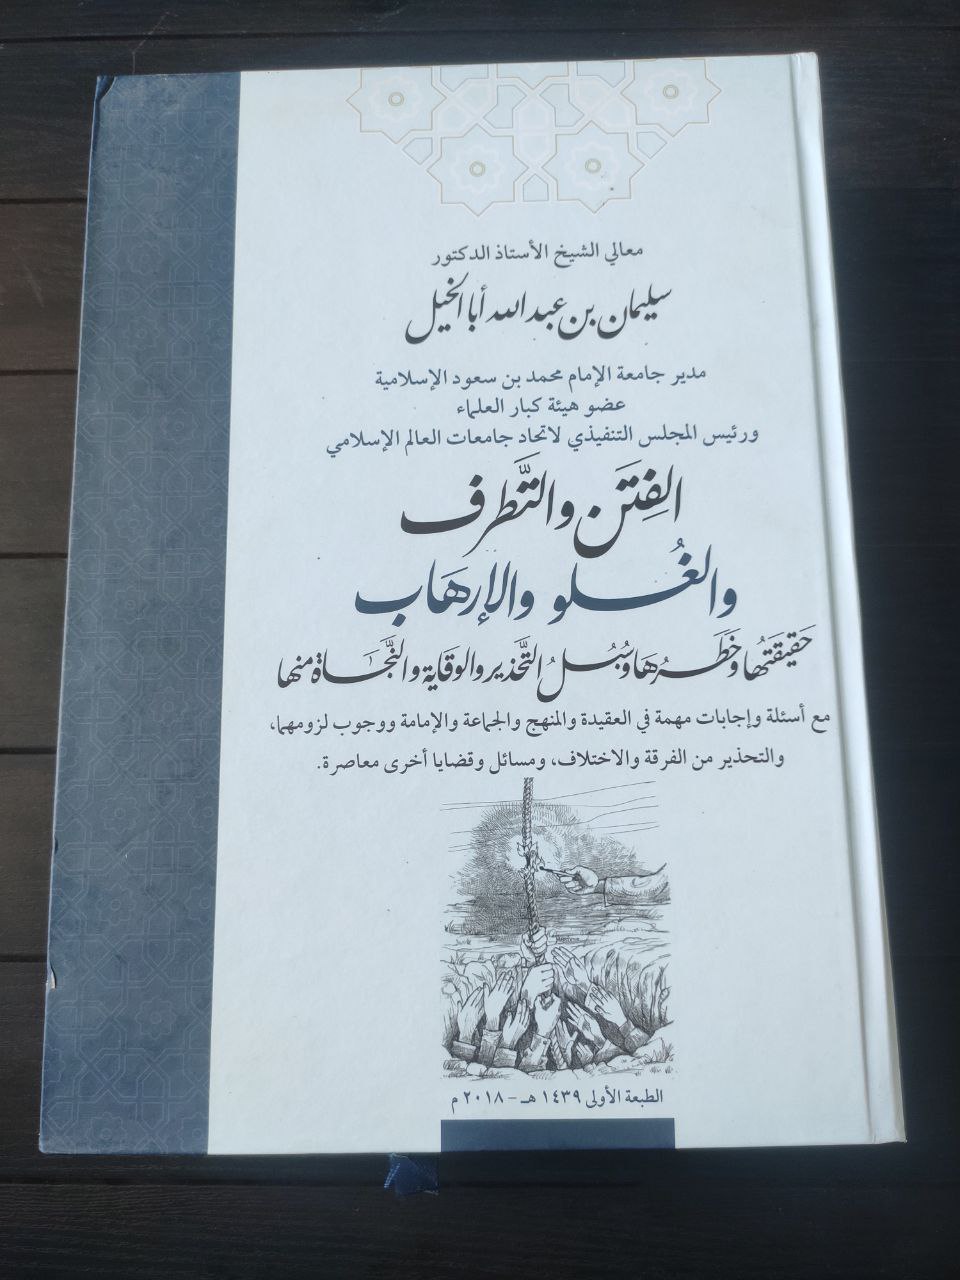 معالي الشيخ الأستاذ الدكتور
سليمان بن عبدالله أبا الخيل
مدير جامعة الإمام محمد بن سعود الإسلامية
عضو هيئة كبار العلماء
ورئيس المجلس التنفيذي لاتحاد جامعات العالم الإسلامي
الفِتَن والتَّطرف
والغُلو والإرهَاب
حَقيقَتُها وخَطَرُهَا وسُبُلُ التَّحذير والوقَاية والنَّجَاة منها
مع أسئلة وإجابات مهمة في العقيدة والمنهج والجماعة والإمامة ووجوب لزومهما،
والتحذير من الفرقة والاختلاف، ومسائل وقضايا أخرى معاصرة.
الطبعة الأولى ١٤٣٩ هـ - ٢٠١٨ م